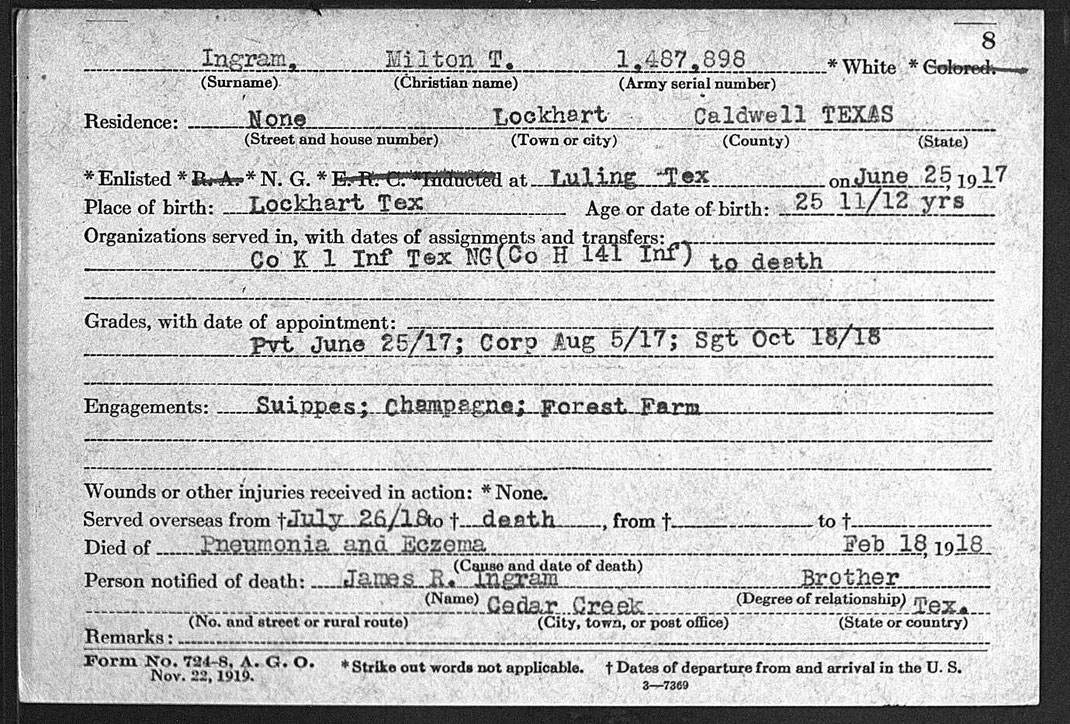 8
Ingram, Milton T. 1,487,898 * White * Colored.
(Surname) (Christian name) (Army serial number)
Residence: None Lockhart Caldwell TEXAS
(Street and house number) (Town or city) (County) (State)
* Enlisted * R. A. * N. G. * E. R. C. * Inducted at Luling Tex on June 25, 1917
Place of birth: Lockhart Tex Age or date of birth: 25 11/12 yrs
Organizations served in, with dates of assignments and transfers:
Co K 1 Inf Tex NG(Co H 141 Inf) to death
Grades, with date of appointment:
Pvt June 25/17; Corp Aug 5/17; Sgt Oct 18/18
Engagements: Suippes; Champagne; Forest Farm
Wounds or other injuries received in action: * None.
Served overseas from † July 26/18 to † death, from † to †
Died of Pneumonia and Eczema Feb 18, 1918
(Cause and date of death)
Person notified of death: James R. Ingram Brother
(Name) (Degree of relationship)
Cedar Creek Tex.
(No. and street or rural route) (City, town, or post office) (State or country)
Remarks:
Form No. 724-8, A. G. O. * Strike out words not applicable. † Dates of departure from and arrival in the U. S.
Nov. 22, 1919. 3—7369